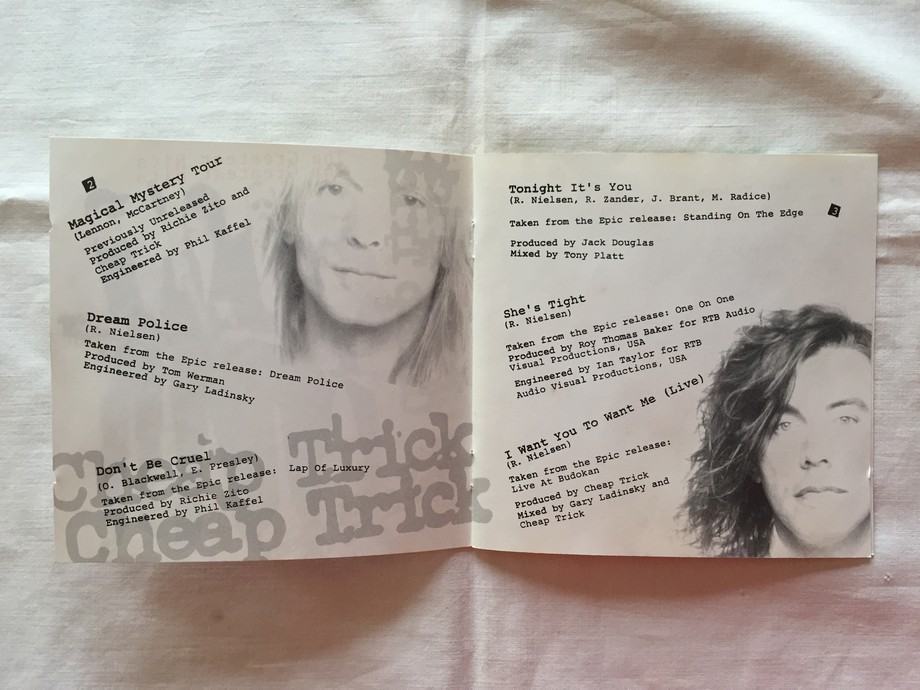 2
Magical Mystery Tour
(Lennon, McCartney)
Previously Unreleased
Produced by Richie Zito and
Cheap Trick
Engineered by Phil Kaffel
Dream Police
(R. Nielsen)
Taken from the Epic release: Dream Police
Produced by Tom Werman
Engineered by Gary Ladinsky
Don't Be Cruel
(O. Blackwell, E. Presley)
Taken from the Epic release: Lap Of Luxury
Produced by Richie Zito
Engineered by Phil Kaffel
Cheap Trick
Cheap Trick
Tonight It's You
(R. Nielsen, R. Zander, J. Brant, M. Radice)
Taken from the Epic release: Standing On The Edge
3
Produced by Jack Douglas
Mixed by Tony Platt
She's Tight
(R. Nielsen)
Taken from the Epic release: One On One
Produced by Roy Thomas Baker for RTB Audio
Visual Productions, USA
Engineered by Ian Taylor for RTB
Audio Visual Productions, USA
I Want You To Want Me (Live)
(R. Nielsen)
Taken from the Epic release:
Live At Budokan
Produced by Cheap Trick
Mixed by Gary Ladinsky and
Cheap Trick